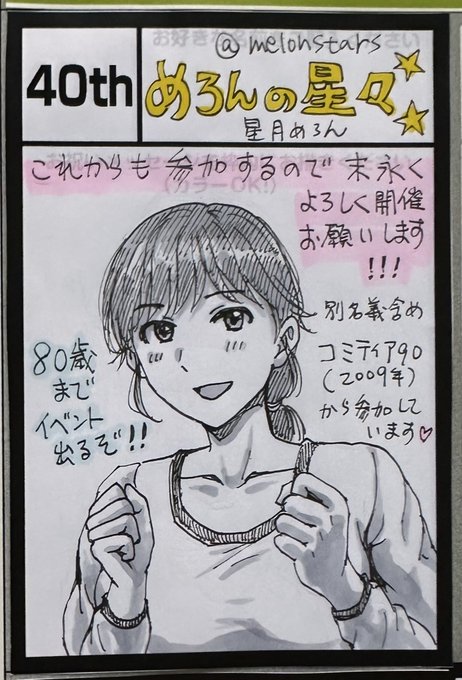 @melonstars
40th
めろんの星々
星月めろん
これからも参加するので末永く
よろしく開催
お願いします
!!!
別名義含め
コミティア90
(2009年)
から参加して
います♡
80歳
まで
イベント
出るぞ!!